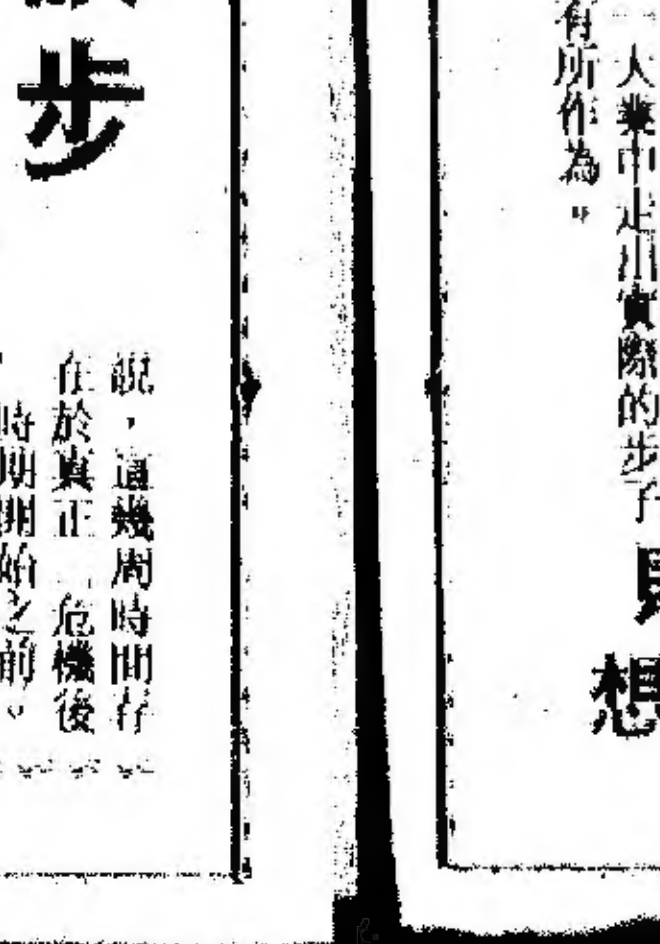 大業中走出實際的步子
有所作為。
想
說，這幾周時間存
在於真正 危機後
時期開始之前。
步